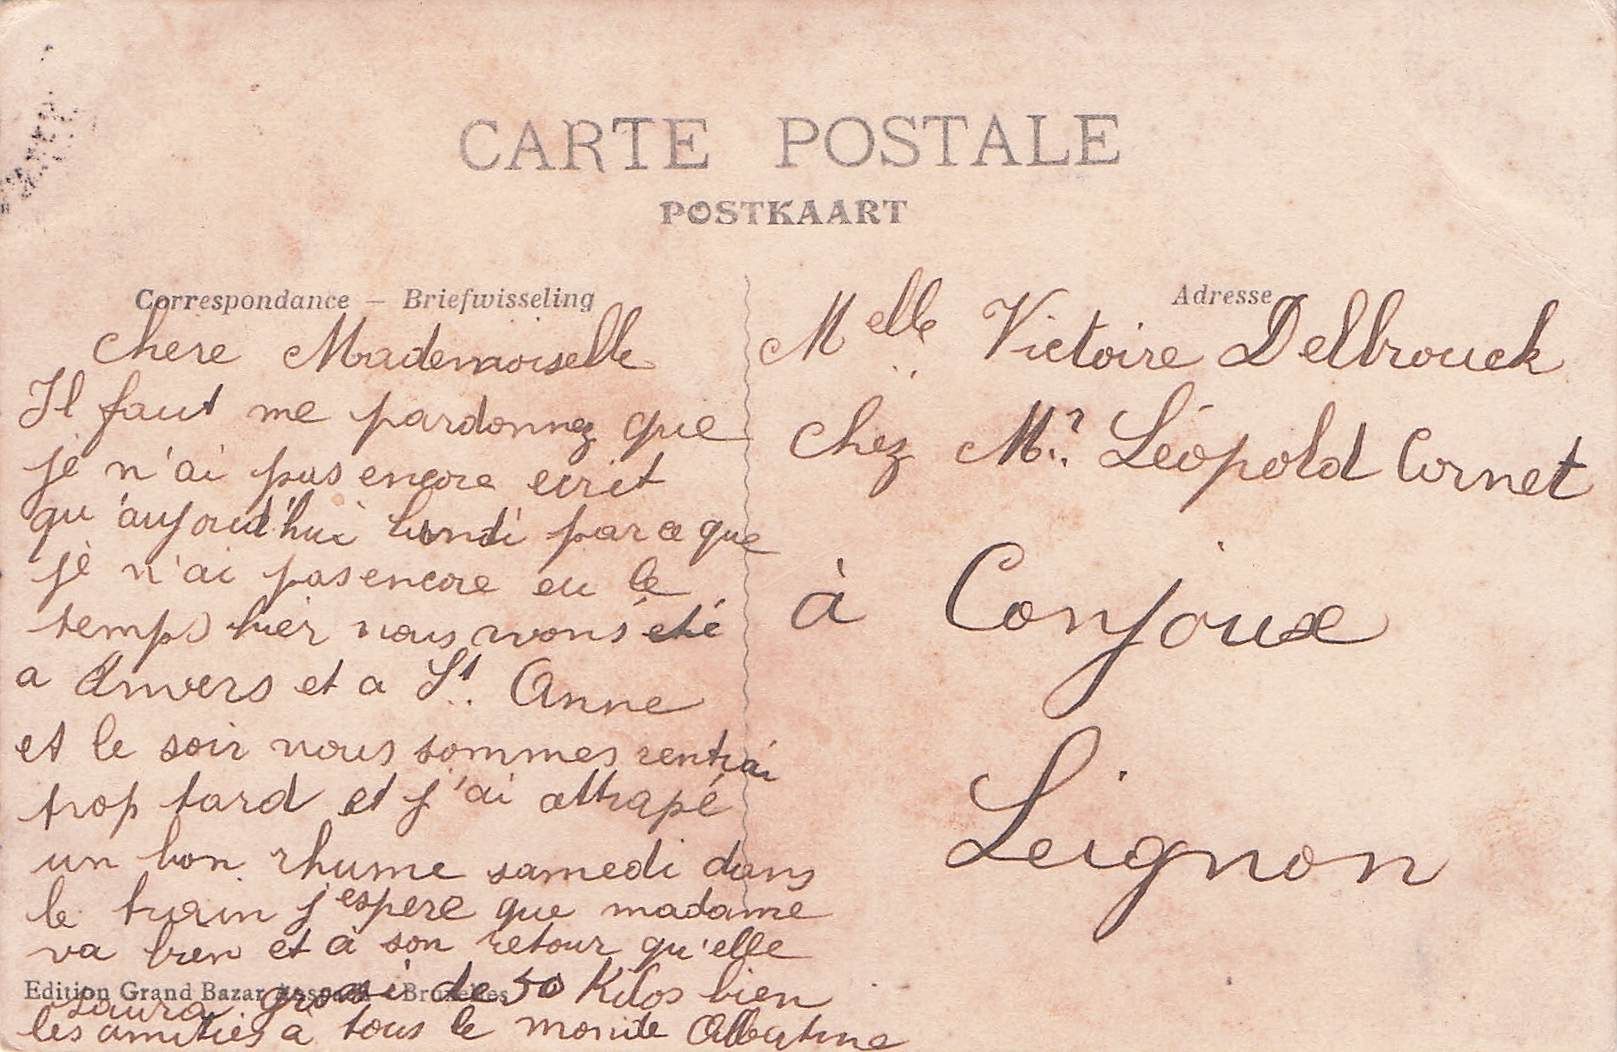 CARTE POSTALE
POSTKAART
Correspondance – Briefwisseling
Adresse
chere Mademoiselle
Il faut me pardonnez que
je n'ai pas encore ecrit
qu'aujourd'hui lundi parce que
je n'ai pas encore eu le
temps hier nous avons été
a Anvers et a St. Anne
et le soir nous sommes rentrai
trop tard et j'ai attrapé
un bon rhume samedi dans
le train j'espere que madame
va bien et a son retour qu'elle
saura grossi de 50 Kilos bien
les amitiés a tous le monde Albertine
Edition Grand Bazar Anspach – Bruxelles
Melle Victoire Delbrouck
chez Mr. Léopold Cornet
à Conjoux
Leignon